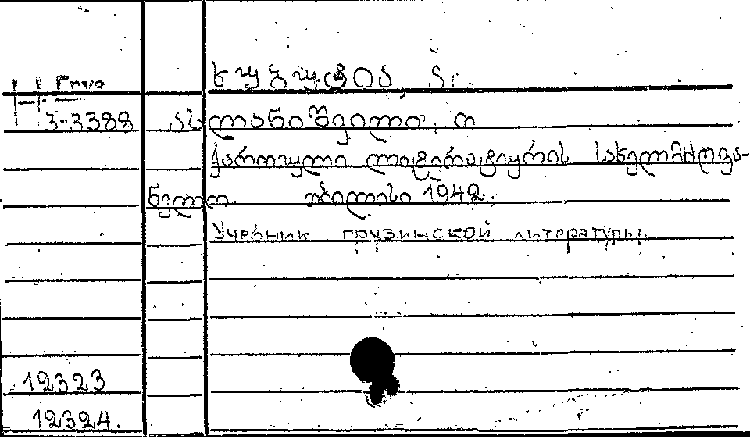 3-3388 ასლანიშვილი, ო
ქართული ლიტერატურის სახელმძღვა-
ნელო. თბილისი 1942.
Учебник грузинской литературы.
12323
12324.